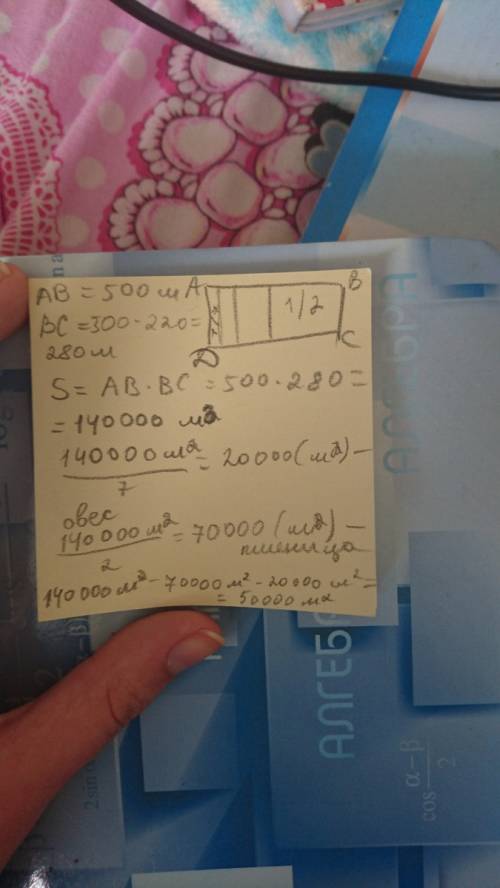 AB = 500 м A B
BC = 300 - 220 = 1/2
280 м D C
S = AB · BC = 500 · 280 =
= 140000 м2
140000 м2 / 7 = 20000 (м2) -
овес
140000 м2 / 2 = 70000 (м2) -
пшеница
140000 м2 - 70000 м2 - 20000 м2 =
= 50000 м2
АЛГЕБРА
АЛГЕБР
cos α-β / 2
2sin